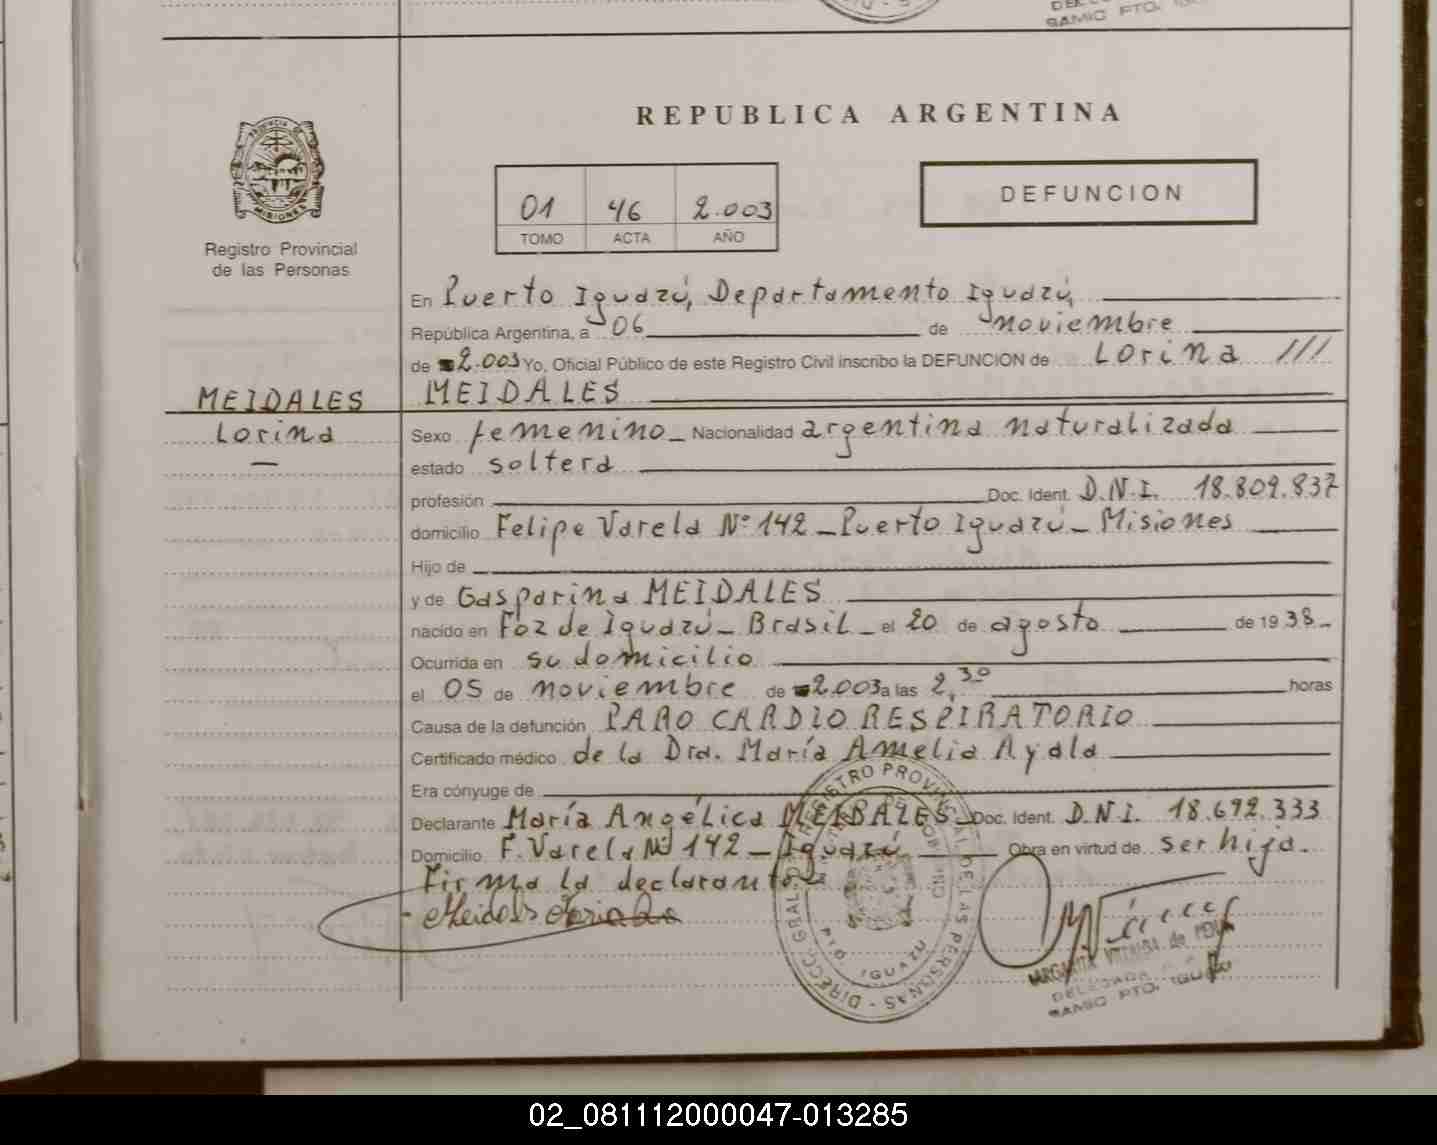 SAMIC PTO.
REPUBLICA ARGENTINA
PROVINCIA DE
MISIONES
Registro Provincial
de las Personas
01 46 2.003
TOMO ACTA AÑO
DEFUNCION
En Puerto Iguazú, Departamento Iguazú,
República Argentina, a 06 de noviembre
de 2.003 Yo, Oficial Público de este Registro Civil inscribo la DEFUNCION de Lorina ///
MEIDALES
MEIDALES
Lorina
—
Sexo femenino_ Nacionalidad argentina naturalizada
estado soltera
profesión Doc. Ident. D.N.I. 18.809.837
domicilio Felipe Varela Nº 142_Puerto Iguazú_Misiones
Hijo de
y de Gasparina MEIDALES
nacido en Foz de Iguazú_Brasil_el 20 de agosto de 1938_
Ocurrida en su domicilio
el 05 de noviembre de 2.003 a las 2,30 horas
Causa de la defunción PARO CARDIO RESPIRATORIO
Certificado médico de la Dra. María Amelia Ayala
Era cónyuge de
Declarante María Angélica MEIDALES_Doc. Ident. D.N.I. 18.692.333
Domicilio F. Varela Nº 142_Iguazú Obra en virtud de ser hija.
Firma la declarante
DIRECC. GRAL. DEL REGISTRO PROVINCIAL DE LAS PERSONAS
PTO. IGUAZU
MARGARITA de
DELEGADA
SAMIC PTO. IGUAZU
02_081112000047-013285